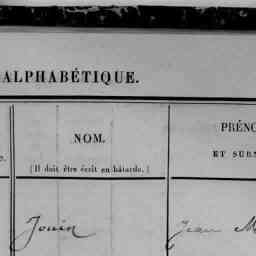 ALPHABÉTIQUE.
NOM.
(Il doit être écrit en bâtarde.)
PRÉNO
ET SURN
Jouin
Jean M